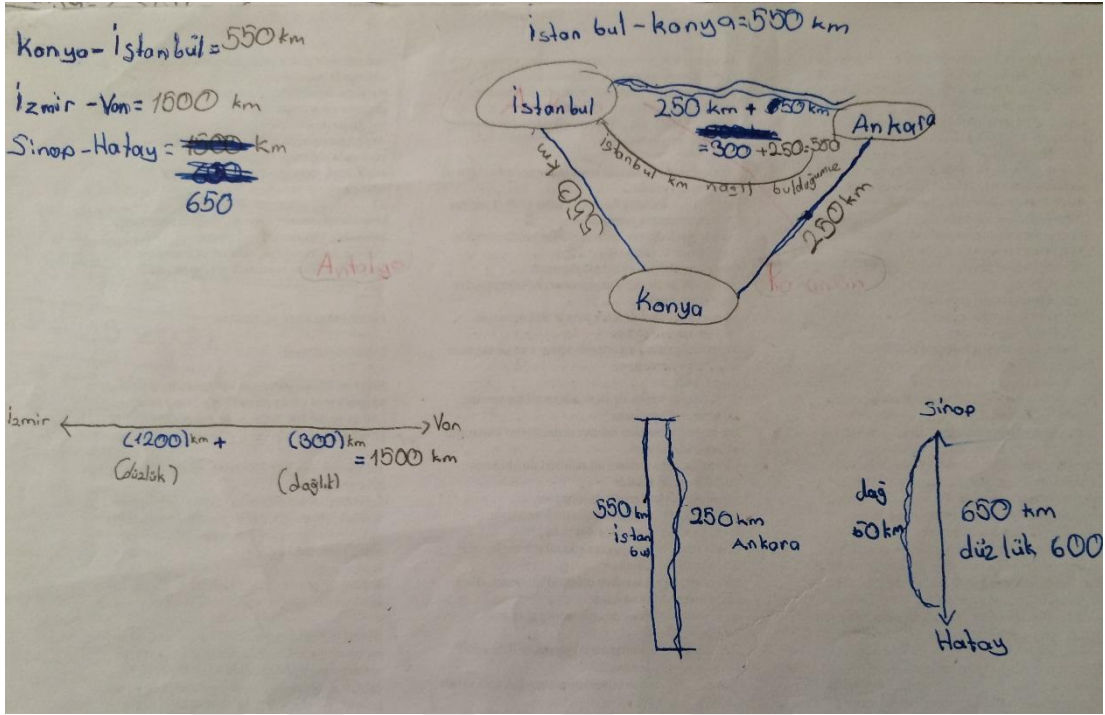 Konya-İstanbul=550 km
İzmir-Van=1500 km
Sinop-Hatay= km
650
İstanbul-konya=550 km
İstanbul
250 km + 50 km
=300 +250=550
Ankara
İstanbul km nasıl bulduğumuz
550 km
250 km
Konya
Antalya
İzmir
Van
(1200)km + (300)km
=1500 km
(düzlük)
(dağlık)
550 km
İstanbul
250 km
Ankara
Sinop
dağ
50 km
650 km
düzlük 600
Hatay